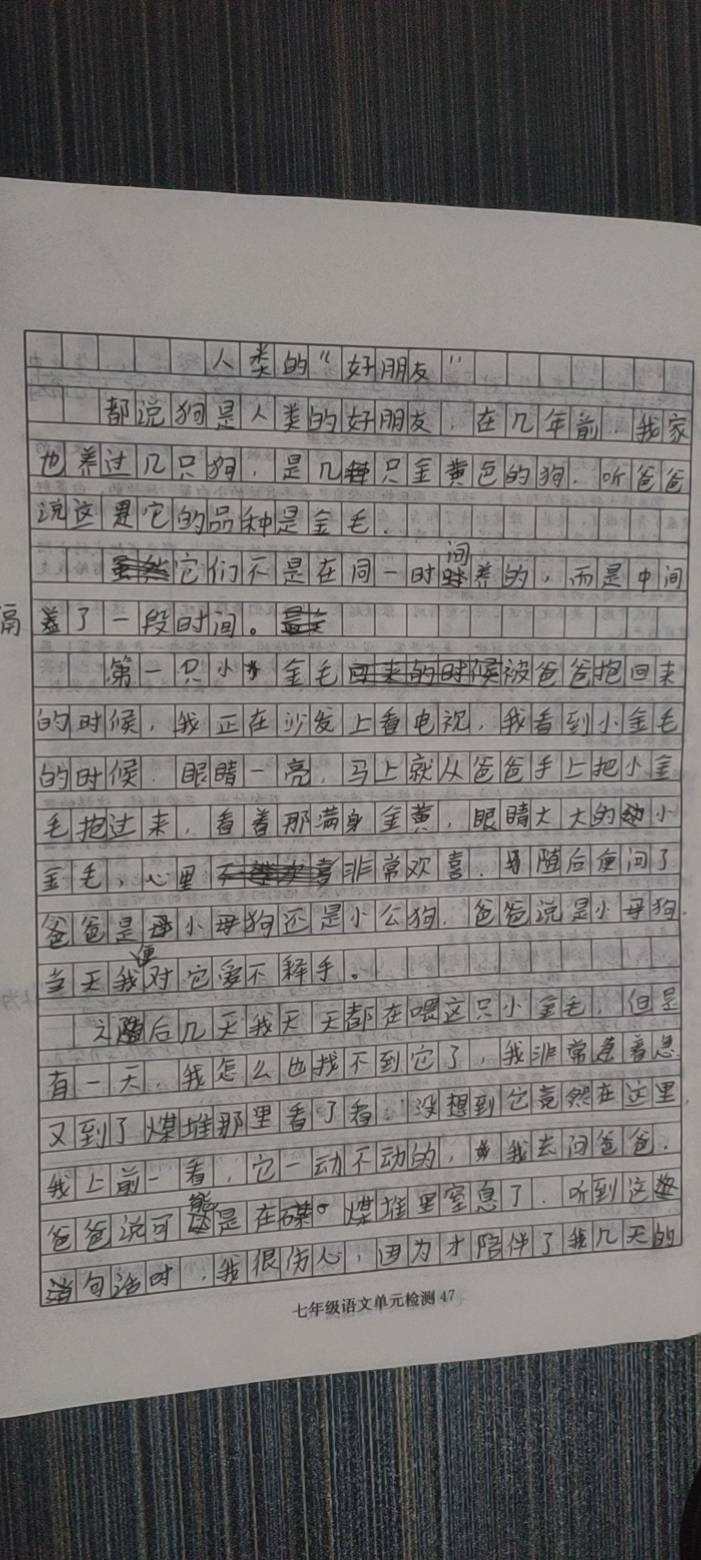 人类的“好朋友”
都说狗是人类的好朋友，在几年前，我家
也养过几只狗，是几只金黄色的狗，听爸爸
说这是它的品种是金毛。
它们不是在同一时间养的，而是中间
隔了一段时间。
第一只小金毛被爸爸抱回来
的时候，我正在沙发上看电视，我看到小金毛
的时候，眼睛一亮，马上就从爸爸手上把小金
毛抱过来，看着那满身金黄，眼睛大大的小
金毛，心里非常欢喜，随后便问了
爸爸是小母狗还是小公狗，爸爸说是小母狗，
当天我便对它爱不释手。
之后几天我天天都在喂这只小金毛，但是
有一天，我怎么也找不到它了，我非常着急
又到了煤堆那里看了看，没想到它竟然在这里，
我上前一看，它一动不动的，我去问爸爸，
爸爸说可能是在煤堆里窒息了，听到这
句话时，我很伤心，因为才陪伴了我几天的
七年级语文单元检测 47